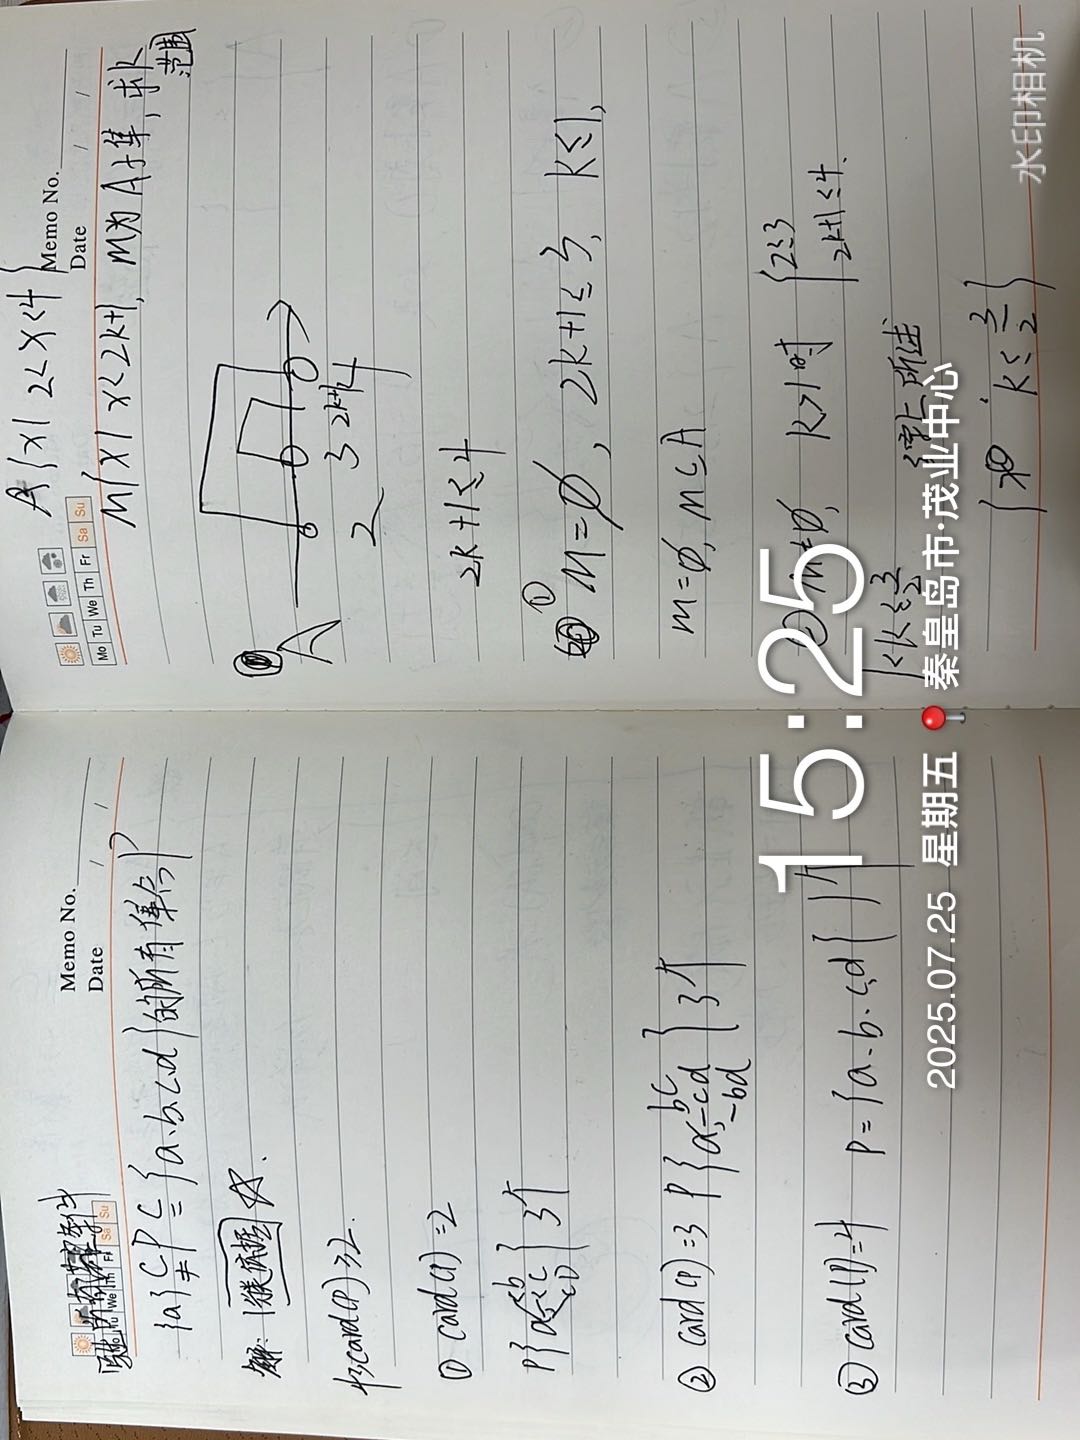 Memo No.
Date / /
Mo Tu We Th Fr Sa Su
{a}⊊P⊆{a.b.c.d}的所有集合P
解:
4≥card(P)≥2.
① card(P)=2
P{a b c D} 3个
② card(P)=3 P{a, bc -cd -bd} 3个
③ card(P)=4 P={a.b.c.d} 1个
Memo No.
Date / /
Mo Tu We Th Fr Sa Su
A{x|2<x<4}
M{x|3<x<2k+1}, M为A子集, 求k范围
A
2 3 2k+1 4
2k+1≤4
① M=∅, 2k+1≤3, k≤1,
M=∅, M⊆A
② M≠∅, k>1时 {2≤3 2k+1≤4.
1<k≤3/2
综上所述
k≤3/2}
15:25
2025.07.25 星期五 秦皇岛市·茂业中心
水印相机